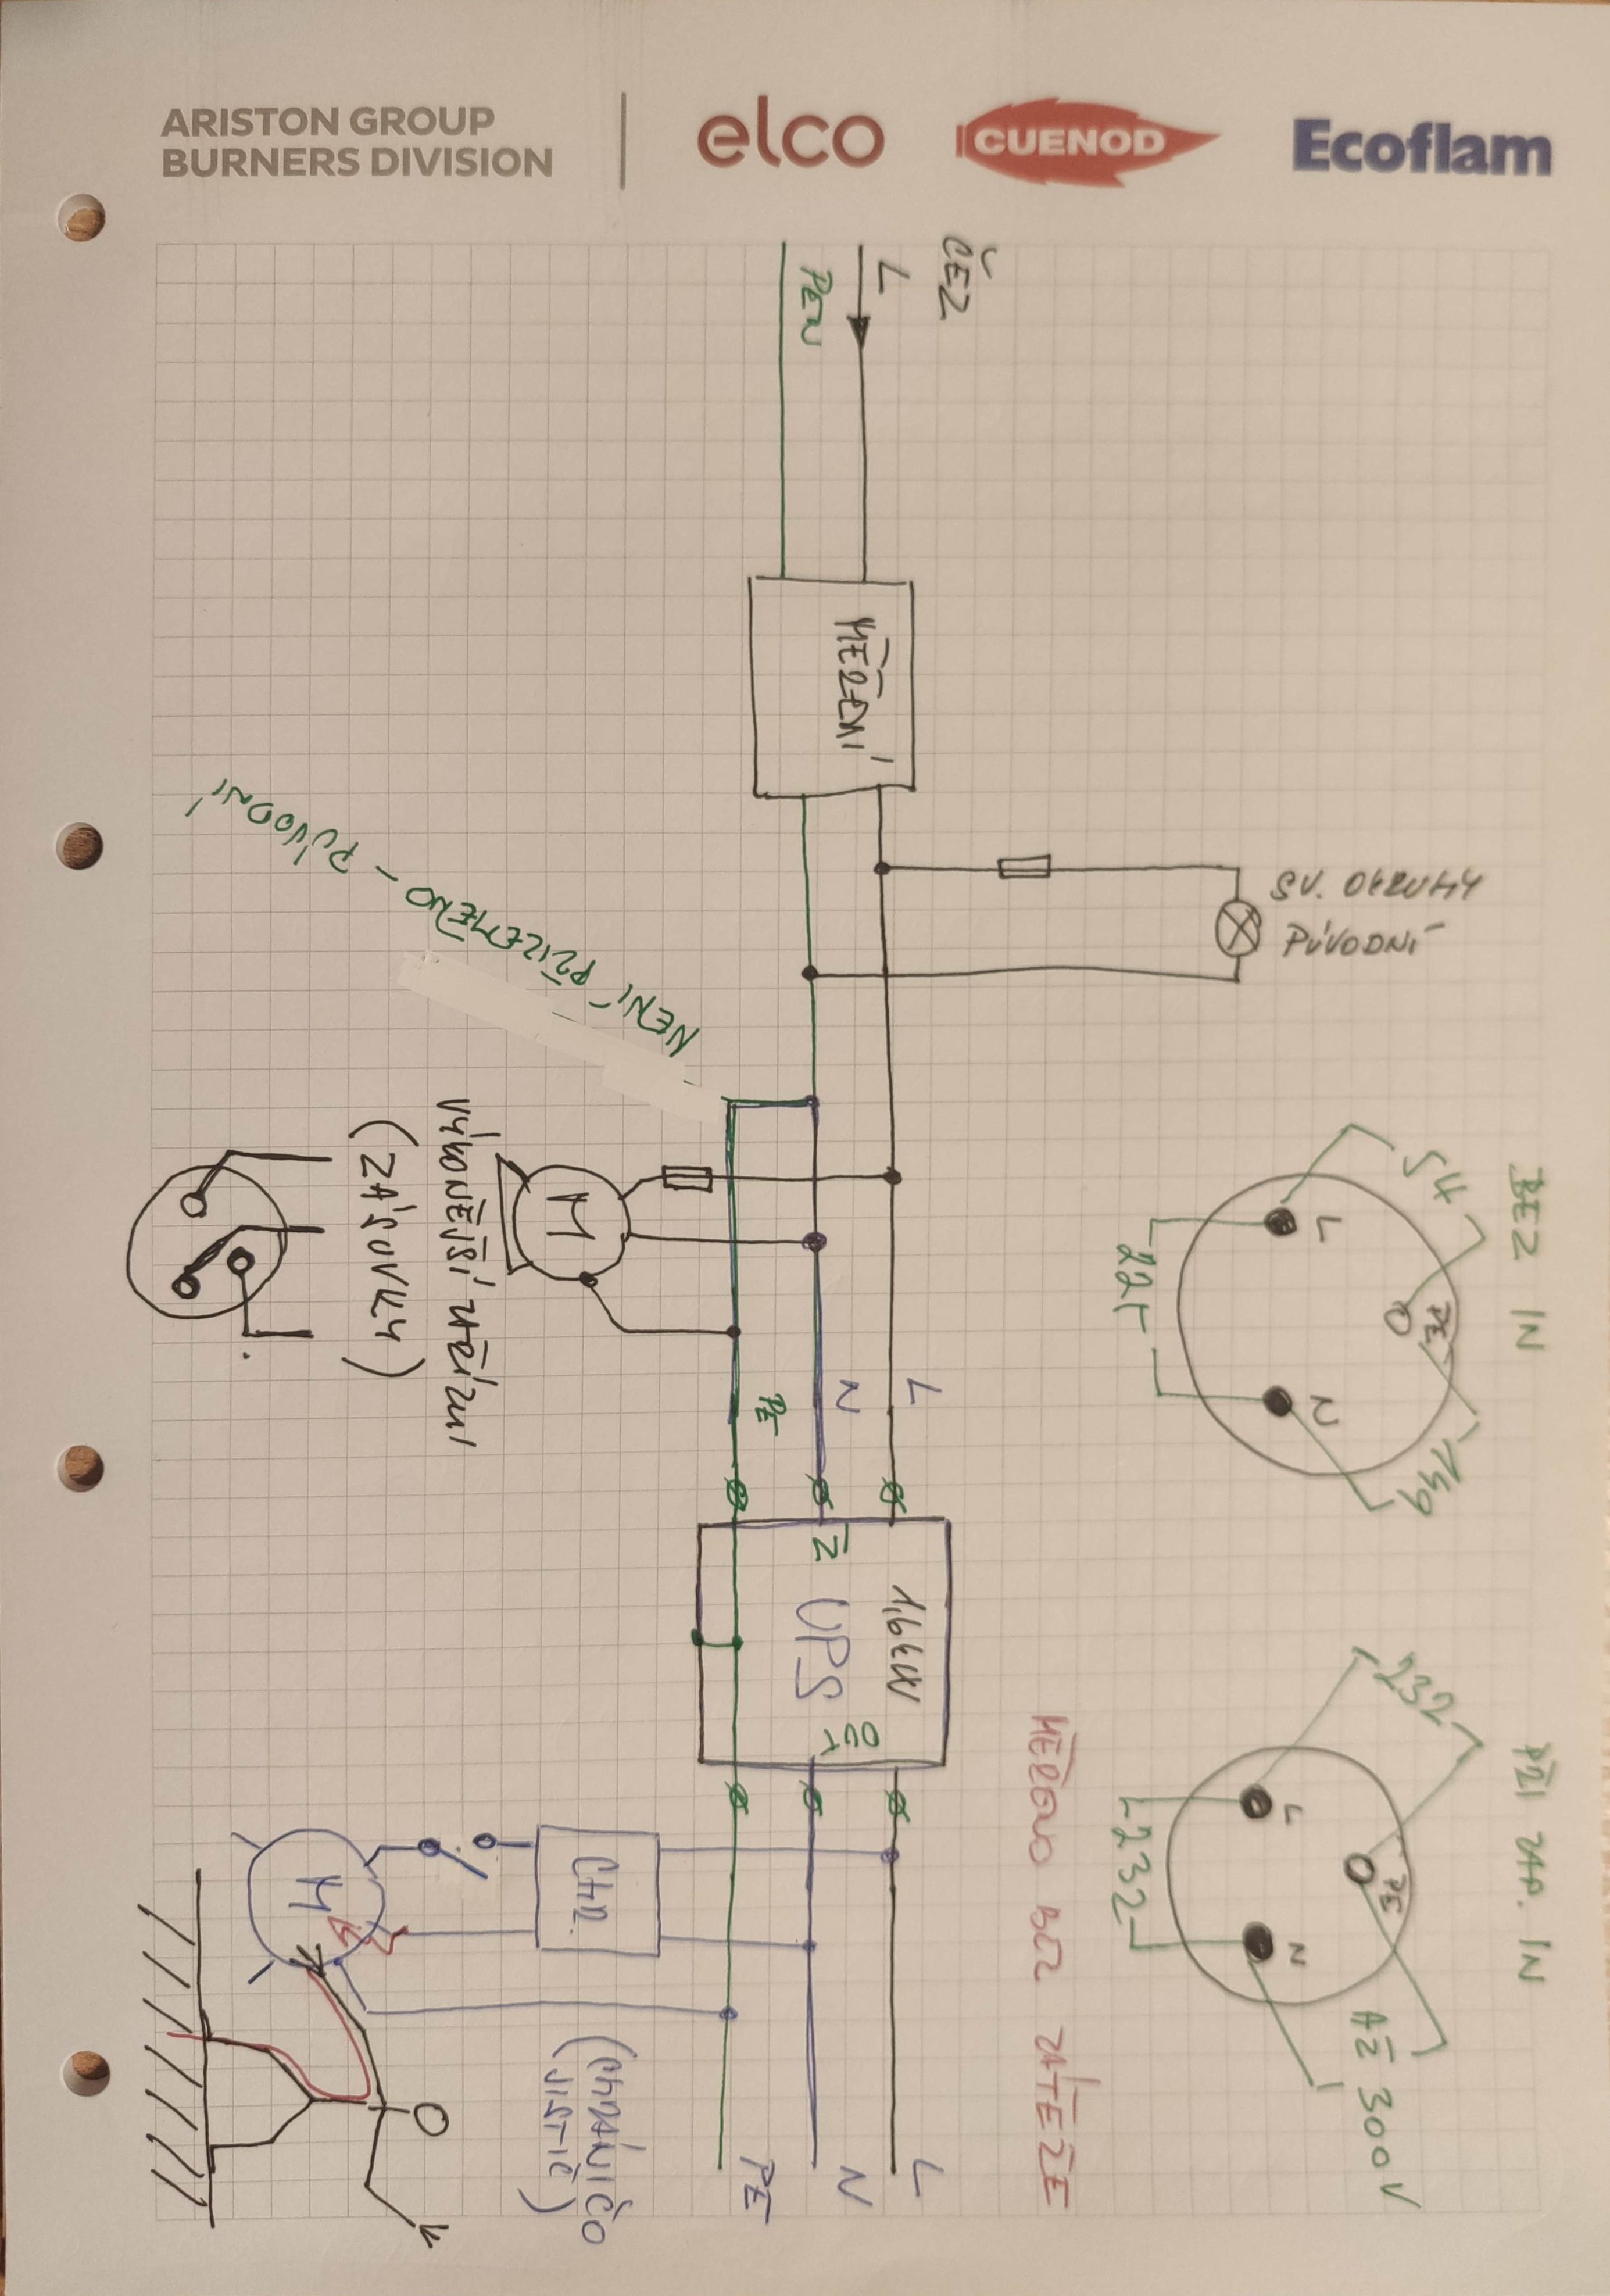 ARISTON GROUP
BURNERS DIVISION
elco
CUENOD
Ecoflam
ČEZ
L
PEN
MĚŘENÍ
SV. OKRUHY
PŮVODNÍ
NENÍ PŘIZEMĚNO - PŮVODNÍ
M
VÝKONĚJŠÍ ZAŘÍZNÍ
(ZÁSUVKY)
L
N
PE
BEZ IN
L
PE
N
54
225
139
1,6kW
UPS
IN
OUT
PŘI ZAP. IN
L
PE
N
232
232
AŽ 300V
MĚŘENO BEZ ZÁTĚŽE
CHR.
M
(CHRÁNIČO
JISTIČ)
L
N
PE